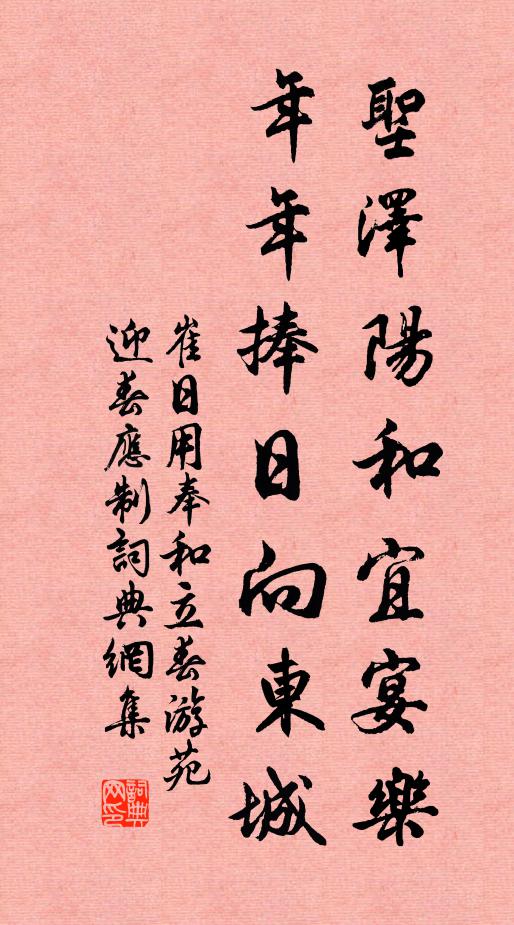 聖澤陽和宜宴樂
年年捧日向東城
崔日用奉和立春游苑
迎春應制詞典網集
詞典
网印